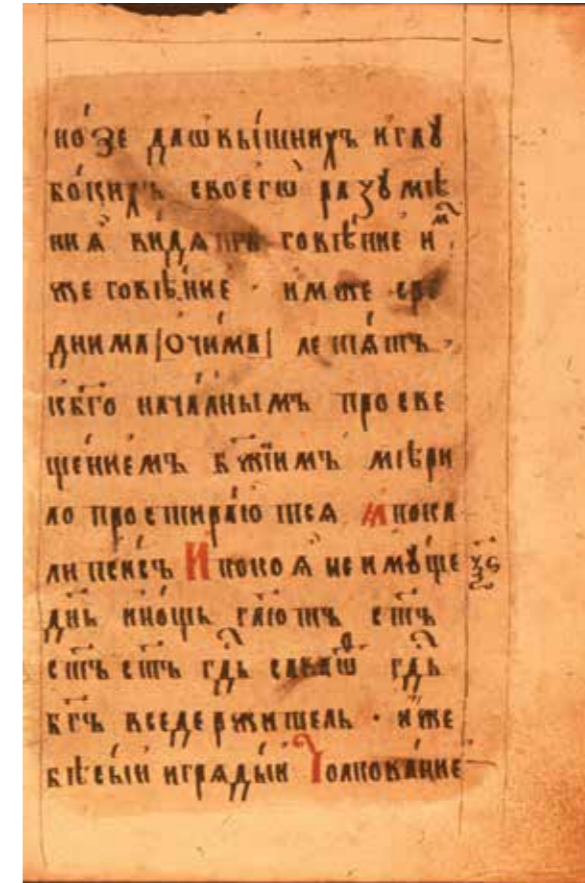 но́зе дашвы́шнихъ иглꙋ
бо́кихъ своегѡ̀ разꙋмѣ
нїѧ̀ ви́дѧ при говѣ́ние и҆м
же говѣ́ние · имже сре
днима [ѻчи́ма] летѧ́тъ ·
къб҃го нача́лнымъ просве
ще́ниемъ бж҃їимъ мѣри
ло простира́ютсѧ апока
ли ѱи́съ И покоѧ̀ неимꙋ́ще
дн҃ь ино́щь гл҃ютъ ст҃ъ
ст҃ъ ст҃ъ гд҃ь савао́ѳ гд҃ь
бг҃ъ вседержитель · и҆же
бѣ́сыи игрѧды́и Толкова́ние